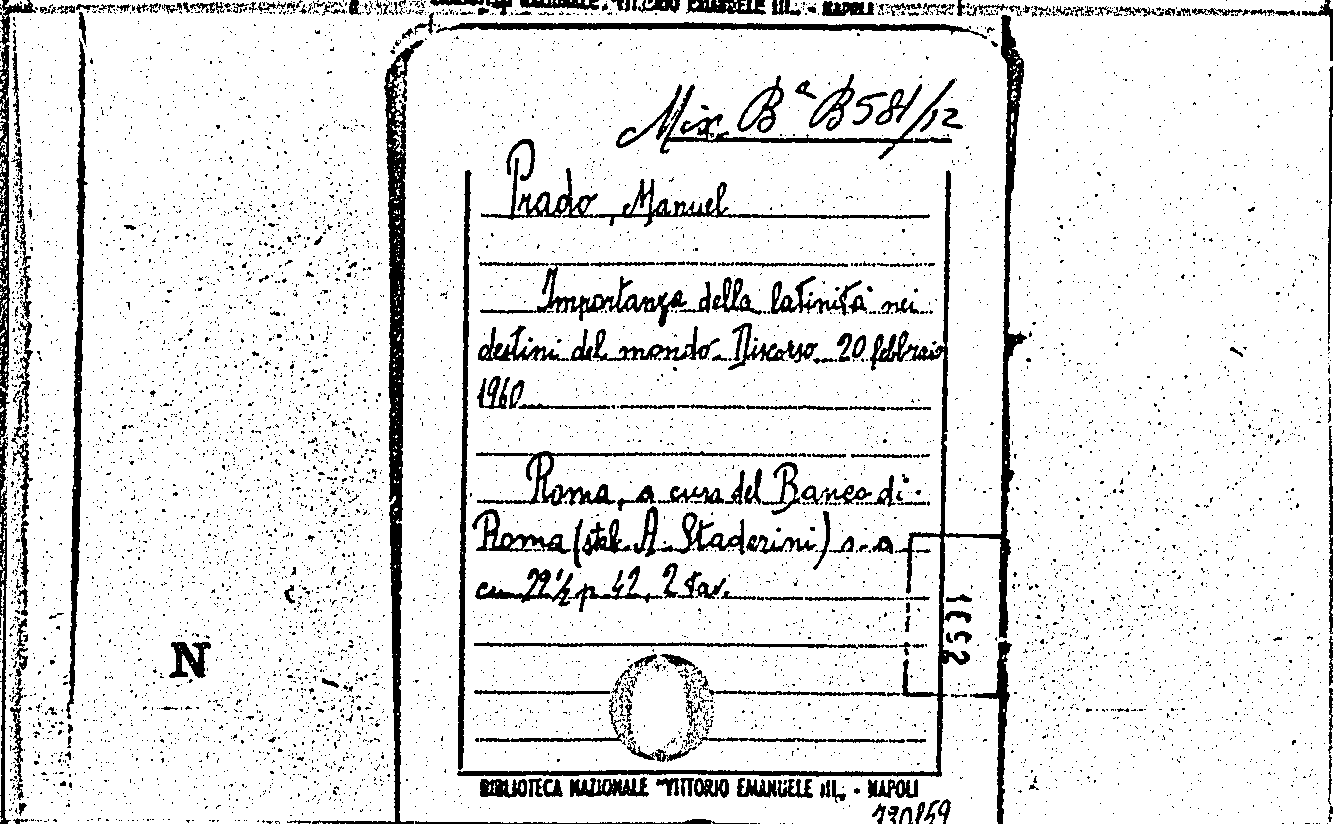 NAZIONALE "VITTORIO EMANUELE III" - NAPOLI
Misc. Bª B 581/12
Prado, Manuel
Importanza della latinità nei
destini del mondo. Discorso. 20 febbraio
1960
Roma, a cura del Banco di
Roma (stab. A. Staderini) s. a.
cm 22½ p. 42, 2 tav.
N
BIBLIOTECA NAZIONALE "VITTORIO EMANUELE III" - NAPOLI
730859